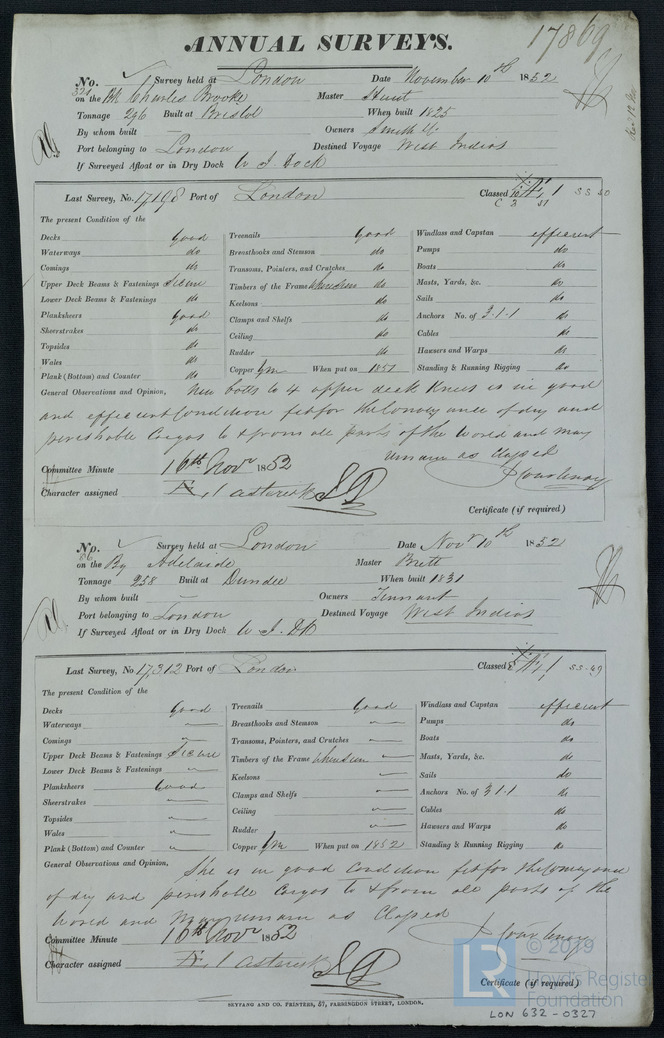 17869
ANNUAL SURVEYS.
No. 321 Survey held at London Date November 10th 1852
on the Bk Charles Brooke Master Hunt
Tonnage 296 Built at Bristol When built 1825
By whom built — Owners Smith & Co
Port belonging to London Destined Voyage West Indies
If Surveyed Afloat or in Dry Dock W I Dock
Last Survey, No. 17198 Port of London Classed A1 SS 50
The present Condition of the
Decks Good
Waterways do
Comings do
Upper Deck Beams & Fastenings Secure
Lower Deck Beams & Fastenings do
Planksheers Good
Sheerstrakes do
Topsides do
Wales do
Plank (Bottom) and Counter do
Treenails Good
Breasthooks and Stemson do
Transoms, Pointers, and Crutches do
Timbers of the Frame when seen do
Keelsons do
Clamps and Shelfs do
Ceiling do
Rudder do
Copper Ym When put on 1851
Windlass and Capstan efficient
Pumps do
Boats do
Masts, Yards, &c. do
Sails do
Anchors No. of 3.1.1 do
Cables do
Hawsers and Warps do
Standing & Running Rigging do
General Observations and Opinion, New bolts to 4 upper deck Knees is in good
and efficient Condition fit for the Conveyance of dry and
perishable Cargos to & from all parts of the World and may
remain as Classed
J Courtenay
Committee Minute 16th Novr 1852
Character assigned 1 asterisk
Certificate (if required)
No. 86 Survey held at London Date Novr 10th 1852
on the Bg Adelaide Master Brett
Tonnage 258 Built at Dundee When built 1831
By whom built — Owners Tennant
Port belonging to London Destined Voyage West Indies
If Surveyed Afloat or in Dry Dock W. I. Dk
Last Survey, No. 17,312 Port of London Classed 1 SS 49
The present Condition of the
Decks Good
Waterways —
Comings —
Upper Deck Beams & Fastenings Secure
Lower Deck Beams & Fastenings —
Planksheers Good
Sheerstrakes —
Topsides —
Wales —
Plank (Bottom) and Counter —
Treenails Good
Breasthooks and Stemson —
Transoms, Pointers, and Crutches —
Timbers of the Frame when seen —
Keelsons —
Clamps and Shelfs —
Ceiling —
Rudder —
Copper Ym When put on 1852
Windlass and Capstan efficient
Pumps do
Boats do
Masts, Yards, &c. do
Sails do
Anchors No. of 3 1.1 do
Cables do
Hawsers and Warps do
Standing & Running Rigging do
General Observations and Opinion, She is in good Condition fit for the Conveyance
of dry and perishable Cargos to & from all parts of the
World and May remain as Classed
J Courtenay
Committee Minute 16th Novr 1852
Character assigned 1 asterisk
Certificate (if required)
SKYFANG AND CO. PRINTERS, 57, FARRINGDON STREET, LONDON.
LR © 2019
Lloyd's Register
Foundation
LON 632-0327